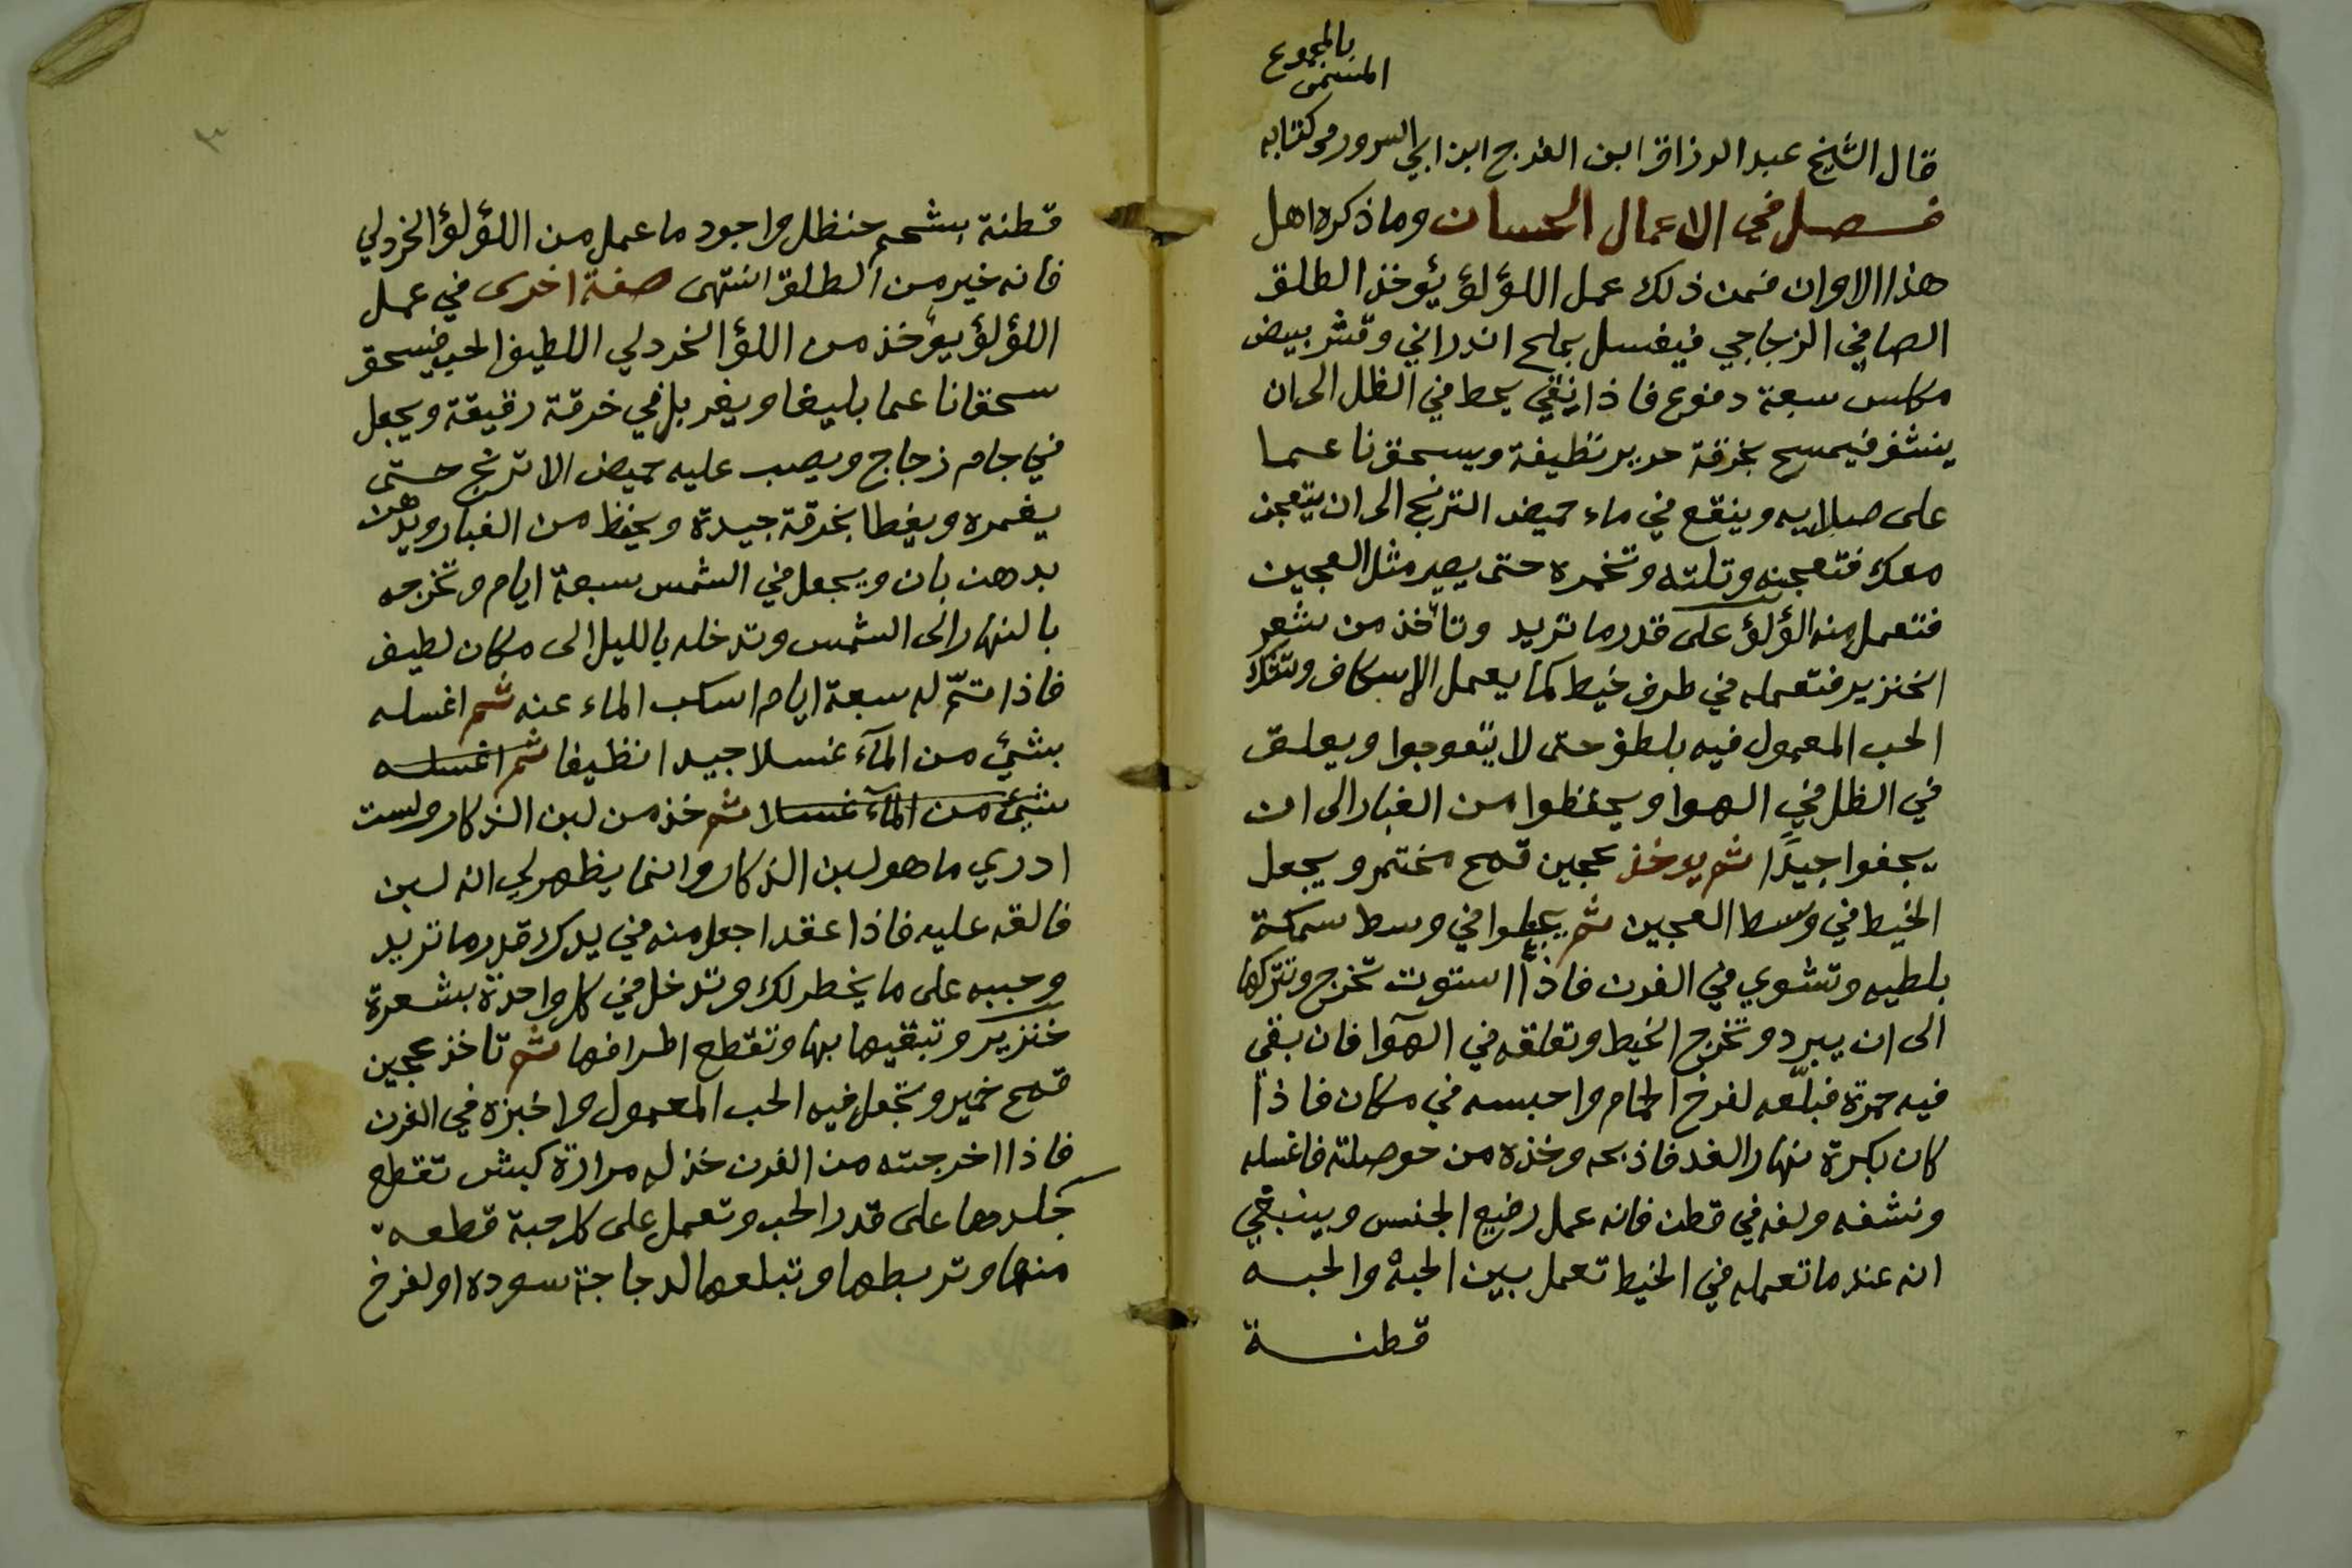 بالمجموع
المسمى
قال الشيخ عبد الرزاق ابن الفرج ابن ابي السرور في كتابه
فصل في الاعمال الحسان وما ذكره اهل
هذا الاوان فمن ذلك عمل اللؤلؤ يؤخذ الطلق
الصافي الزجاجي فيغسل بملح اندراني وقشر بيض
مكلس سبعة دفوع فاذا نقي يحط في الظل الى ان
ينشف فيمسح بخرقة حرير نظيفة ويسحق ناعما
على صلايه وينقع في ماء حميض الترنج الى ان يتعجن
معك فتعجنه وتلته وتخمره حتى يصير مثل العجين
فتعمل منه الؤلؤ على قدر ما تريد وتأخذ من شعر
الخنزير فتعمله في طرف خيط كما يعمل الاسكاف وتترك
الحب المعمول فيه بلطف حتى لا يتعوجوا ويعلق
في الظل في الهوا ويحفظوا من الغبار الى ان
يجفوا جيدًا ثم يوخذ عجين قمح مختمر ويجعل
الخيط في وسط العجين ثم يجعلوا في وسط سمكة
بلطيه وتشوي في الفرن فاذا استوت تخرج وتتركها
الى ان يبرد وتخرج الخيط وتعلقه في الهوآ فان بقي
فيه حمرة فبلّعه لفرخ الحمام واحبسه في مكان فاذا
كان بكرة نهار الغد فاذبحه وخذه من حوصلته فاغسله
ونشفه ولفه في قطن فانه عمل رفيع الجنس وينبغي
انه عندما تعمله في الخيط تعمل بين الحبة والحبه
قطنة
٣
قطنة بشحم حنظل واجود ما عمل من اللؤلؤ الخردلي
فانه خير من الطلق انتهى صفة اخرى في عمل
اللؤلؤ يؤخذ من اللؤ الخردلي اللطيف الحب فيسحق
سحقا ناعما بليغا ويغربل في خرقة رقيقة ويجعل
في جام زجاج ويصب عليه حميض الاترنج حتى
يغمره ويغطا بخرقة جيدة ويحفظ من الغبار ويدهن
بدهن بان ويجعل في الشمس سبعة ايام وتخرجه
بالنهار الى الشمس وتدخله بالليل الى مكان لطيف
فاذا تمّ له سبعة ايام اسكب الماء عنه ثم اغسله
بشيئ من المآء غسلا جيدا نظيفا ثم اغسله
بشيئ من المآء غسلا ثم خذ من لبن الذكار ولست
ادري ما هو لبن الذكار وانما يظهر لي انه لبن
فالقه عليه فاذا عقد اجعل منه في يدك قدر ما تريد
وحببه على ما يخطر لك وتدخل في كل واحدة بشعرة
خنزير وتبقيها بها وتقطع اطرافها ثم تاخذ عجين
قمح خمير وتجعل فيه الحب المعمول واخبزه في الفرن
فاذا اخرجته من الفرن خذ له مرارة كبش تقطع
جلدها على قدر الحب وتعمل على كل حبة قطعه
منها وتربطها وتبلعها لدجاجة سوده او لفرخ